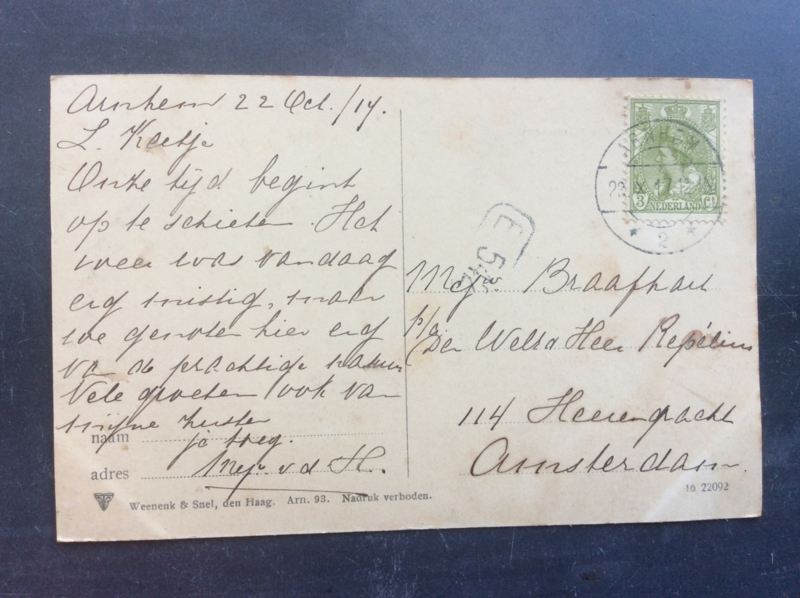 Arnhem 22 Oct. /17.
L. Keetje
Onze tijd begint
op te schieten. Het
weer was vandaag
erg mistig, maar
we genoten hier erg
van de prachtige natuur
Vele groeten ook van
mijne zuster
je toeg.
Mej. v. d. H.
naam
adres
Weenenk & Snel, den Haag. Arn. 93. Nadruk verboden.
ARNHEM
2
3 Ct
NEDERLAND
E 512
Mej. Braafhart
p/a
Den Weled Heer Repelius
114 Heerengracht
Amsterdam.
16 22092